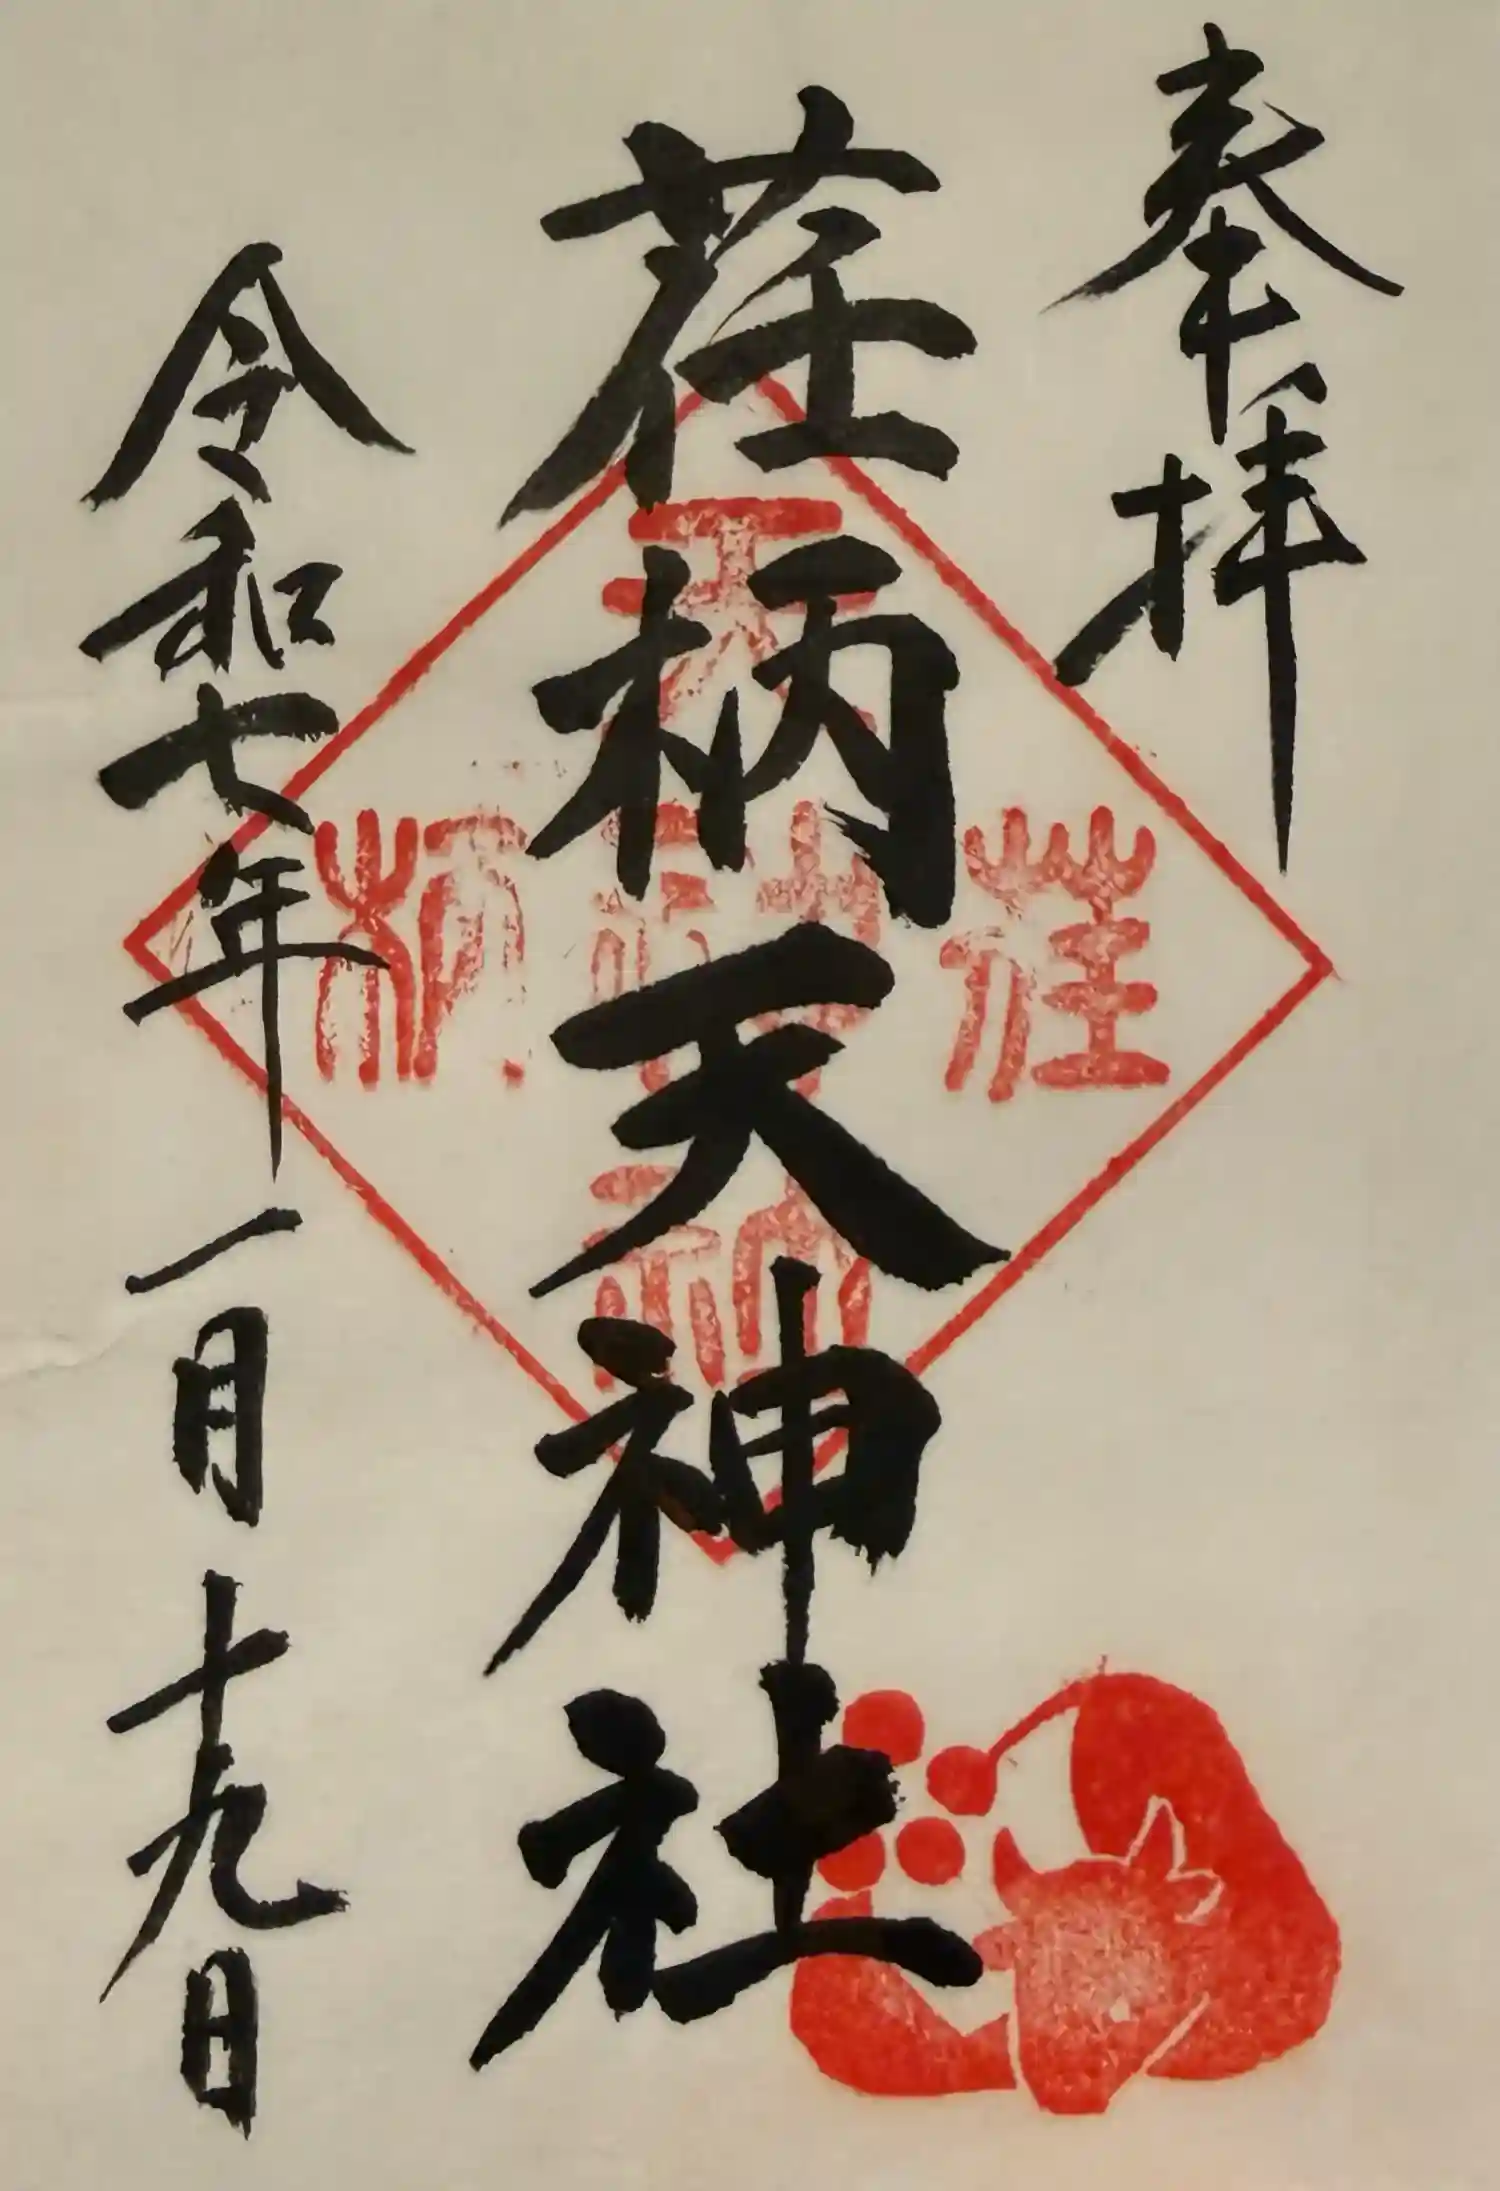 奉拝
荏柄天神社
令和七年一月十九日